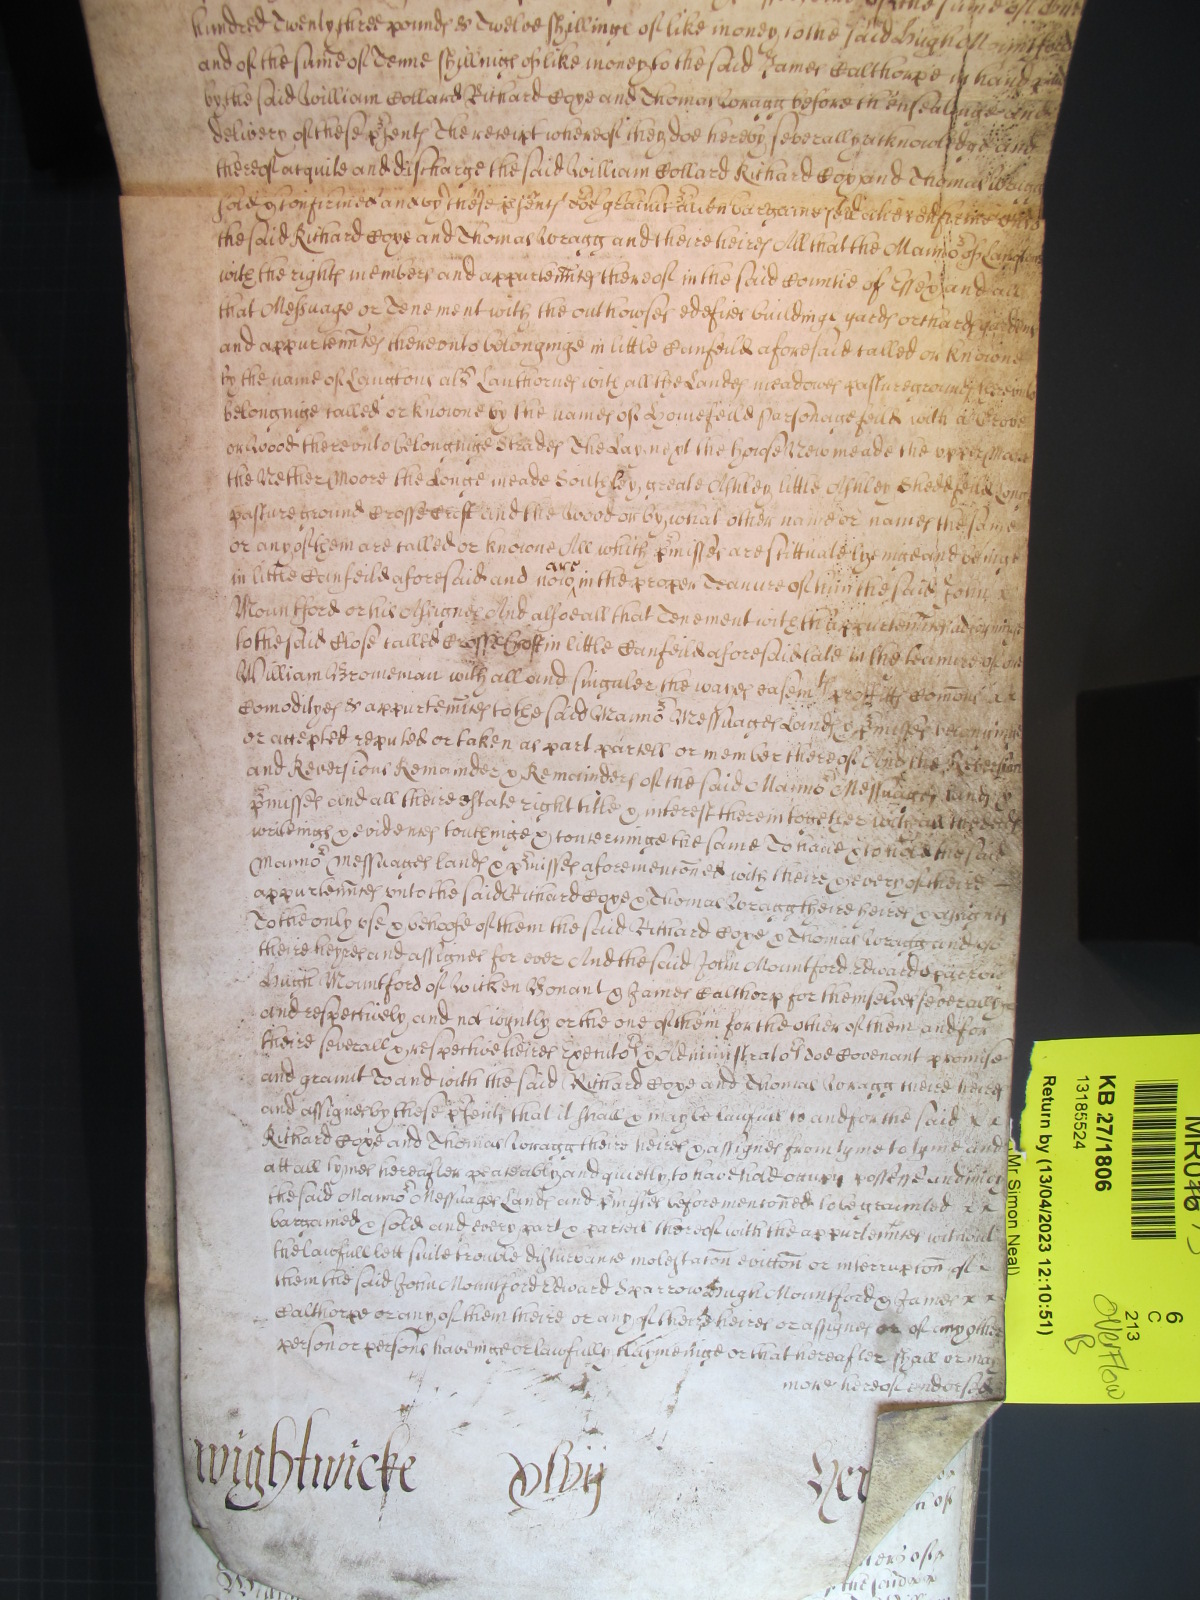 hundred Twenty three pounds & Twelve shillings of like money to the said Hugh Mountford
and of the sume of Tenne shillings of like money to the said James Calthorpe in hand paid
by the said William Collard Richard Cope and Thomas Wragg before th'ensealinge and
delivery of these p'sents The receipt whereof they doe hereby severally acknowledge and
thereof acquite and discharge the said William Collard Richard Cope and Thomas Wragg
sold & confirmed and by these p'sents doe graunt alien bargaine sell
the said Richard Cope and Thomas Wragg and theire heires All that the Manno'r of Langtons
with the rights members and appurten'nces thereof in the said Countie of Essex and all
that Messuage or Tenement with the outhowses edefices buildings yards orchards gardens
and appurten'nces thereonto belonginge in little Canfeild aforesaid called or knowne
by the name of Langtons al's Lanthornes with all the Landes meadowes pasture grounds thereonto
belonginge called or knowne by the names of Homefeild Parsonagefeild with a Grove
or Wood thereonto belonginge Strades The Lay next the howse Newmeade the upper Moore
the Nether Moore the Longe meade South Ley, greate Ashley little Ashley
pasture ground Crosse Croft and the Wood or by what other name or names the same
or any of them are called or knowne All which p'misses are scittuate lyeinge and beinge
in little Canfeild aforesaid and now are in the proper Teanure of him the said John x
Mountford or his Assignes And alsoe all that Tenement with th'appurten'nces adioyninge
to the said Close called Crosse Croft in little Canfeild aforesaid late in the teanure of one
William Browneman with all and singuler the waies easem'ts proffitts Com'ons x x
Comodityes & appurten'nces to the said Manno'r Messuages Lands & p'misses belonginge
or accepted reputed or taken as part parcell or member thereof And the Reversion
and Reversions Remainder & Remainders of the said Manno'r Messuages lands &
p'misses and all theire estate right title & interest therein together with all the deeds
writeings & evidences touchinge & concerninge the same To have & to hold the said
Manno'r Messuages lands & p'misses aforementoned with theire & every of theire
appurten'nces unto the said Richard Cope & Thomas Wragg theire heires & assignes
To the only use & behoofe of them the said Richard Cope & Thomas Wragg and of
theire heyres and assignes for ever And the said John Mountford Edward Sparrow
Hugh Mountford of Wicken Bonant & James Calthorp for themselves severally
and respectively and not ioyntly or the one of them for the other of them and for
theire severall & respective heires Executo'rs & Administrato'rs doe Covenant promise
and graunt To and with the said Richard Cope and Thomas Wragg theire heires
and assignes by these p'sents that it shall & may be lawfull to and for the said x x
Richard Cope and Thomas Wragg theire heires & assignes from tyme to tyme and
att all tymes hereafter peaceably and quietly to have hold occupy possesse and enioy
the said Manno'r Messuages Lands and p'misses before mentoned to be graunted x x
bargained & sold and every part & parcell thereof with the appurten'nces without
the lawfull lett suite trouble disturbance molestation eviction or interruption of x
them the said John Mountford Edward Sparrow Hugh Mountford & James x x
Calthorpe or any of them theire or any of theire heires or assignes or of any other
person or persons haveinge or lawfully claymeinge or that hereafter shall or may
more hereof endorsed
Wightwicke xlvij
KB 27/1806
13185524
Return by (13/04/2023 12:10:51)
(Mr Simon Neal)
6
C
213
Overflow
B